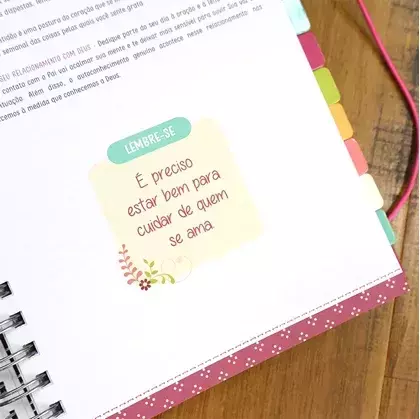 tidão é uma postura do coração que se m
semanal das coisas pelas quais você sente grato.
SEU RELACIONAMENTO COM DEUS - Dedique parte do seu dia à oração e à leit
contato com o Pai vai acalmar sua mente e te deixar mais sensível para ouvir Sua voz
tuação. Além disso, o autoconhecimento genuíno acontece nesse relacionamento, nos
cemos à medida que conhecemos a Deus.
LEMBRE-SE
É preciso
estar bem para
cuidar de quem
se ama.